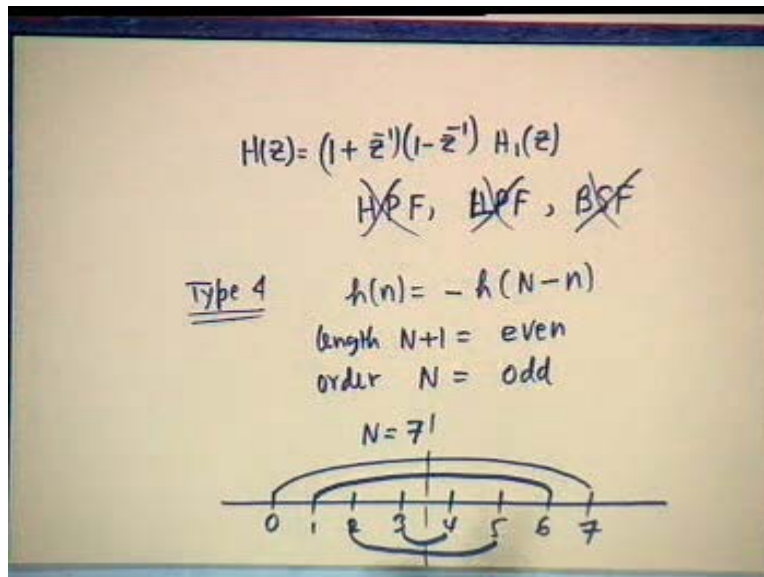 H(z)= (1+ z̄¹)(1-z̄¹) H₁(z)
HPF, LPF, BSF
Type 4 h(n)= - h(N-n)
length N+1 = even
order N = odd
N=7
0 1 2 3 4 5 6 7